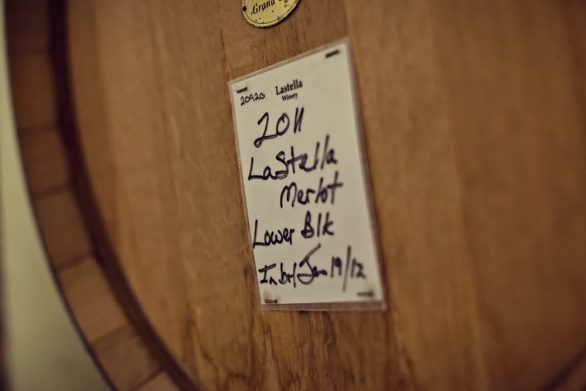 Grand
20920
Lastella
Winery
2011
LaStella
Merlot
Lower Blk
In brl Jan 19/12